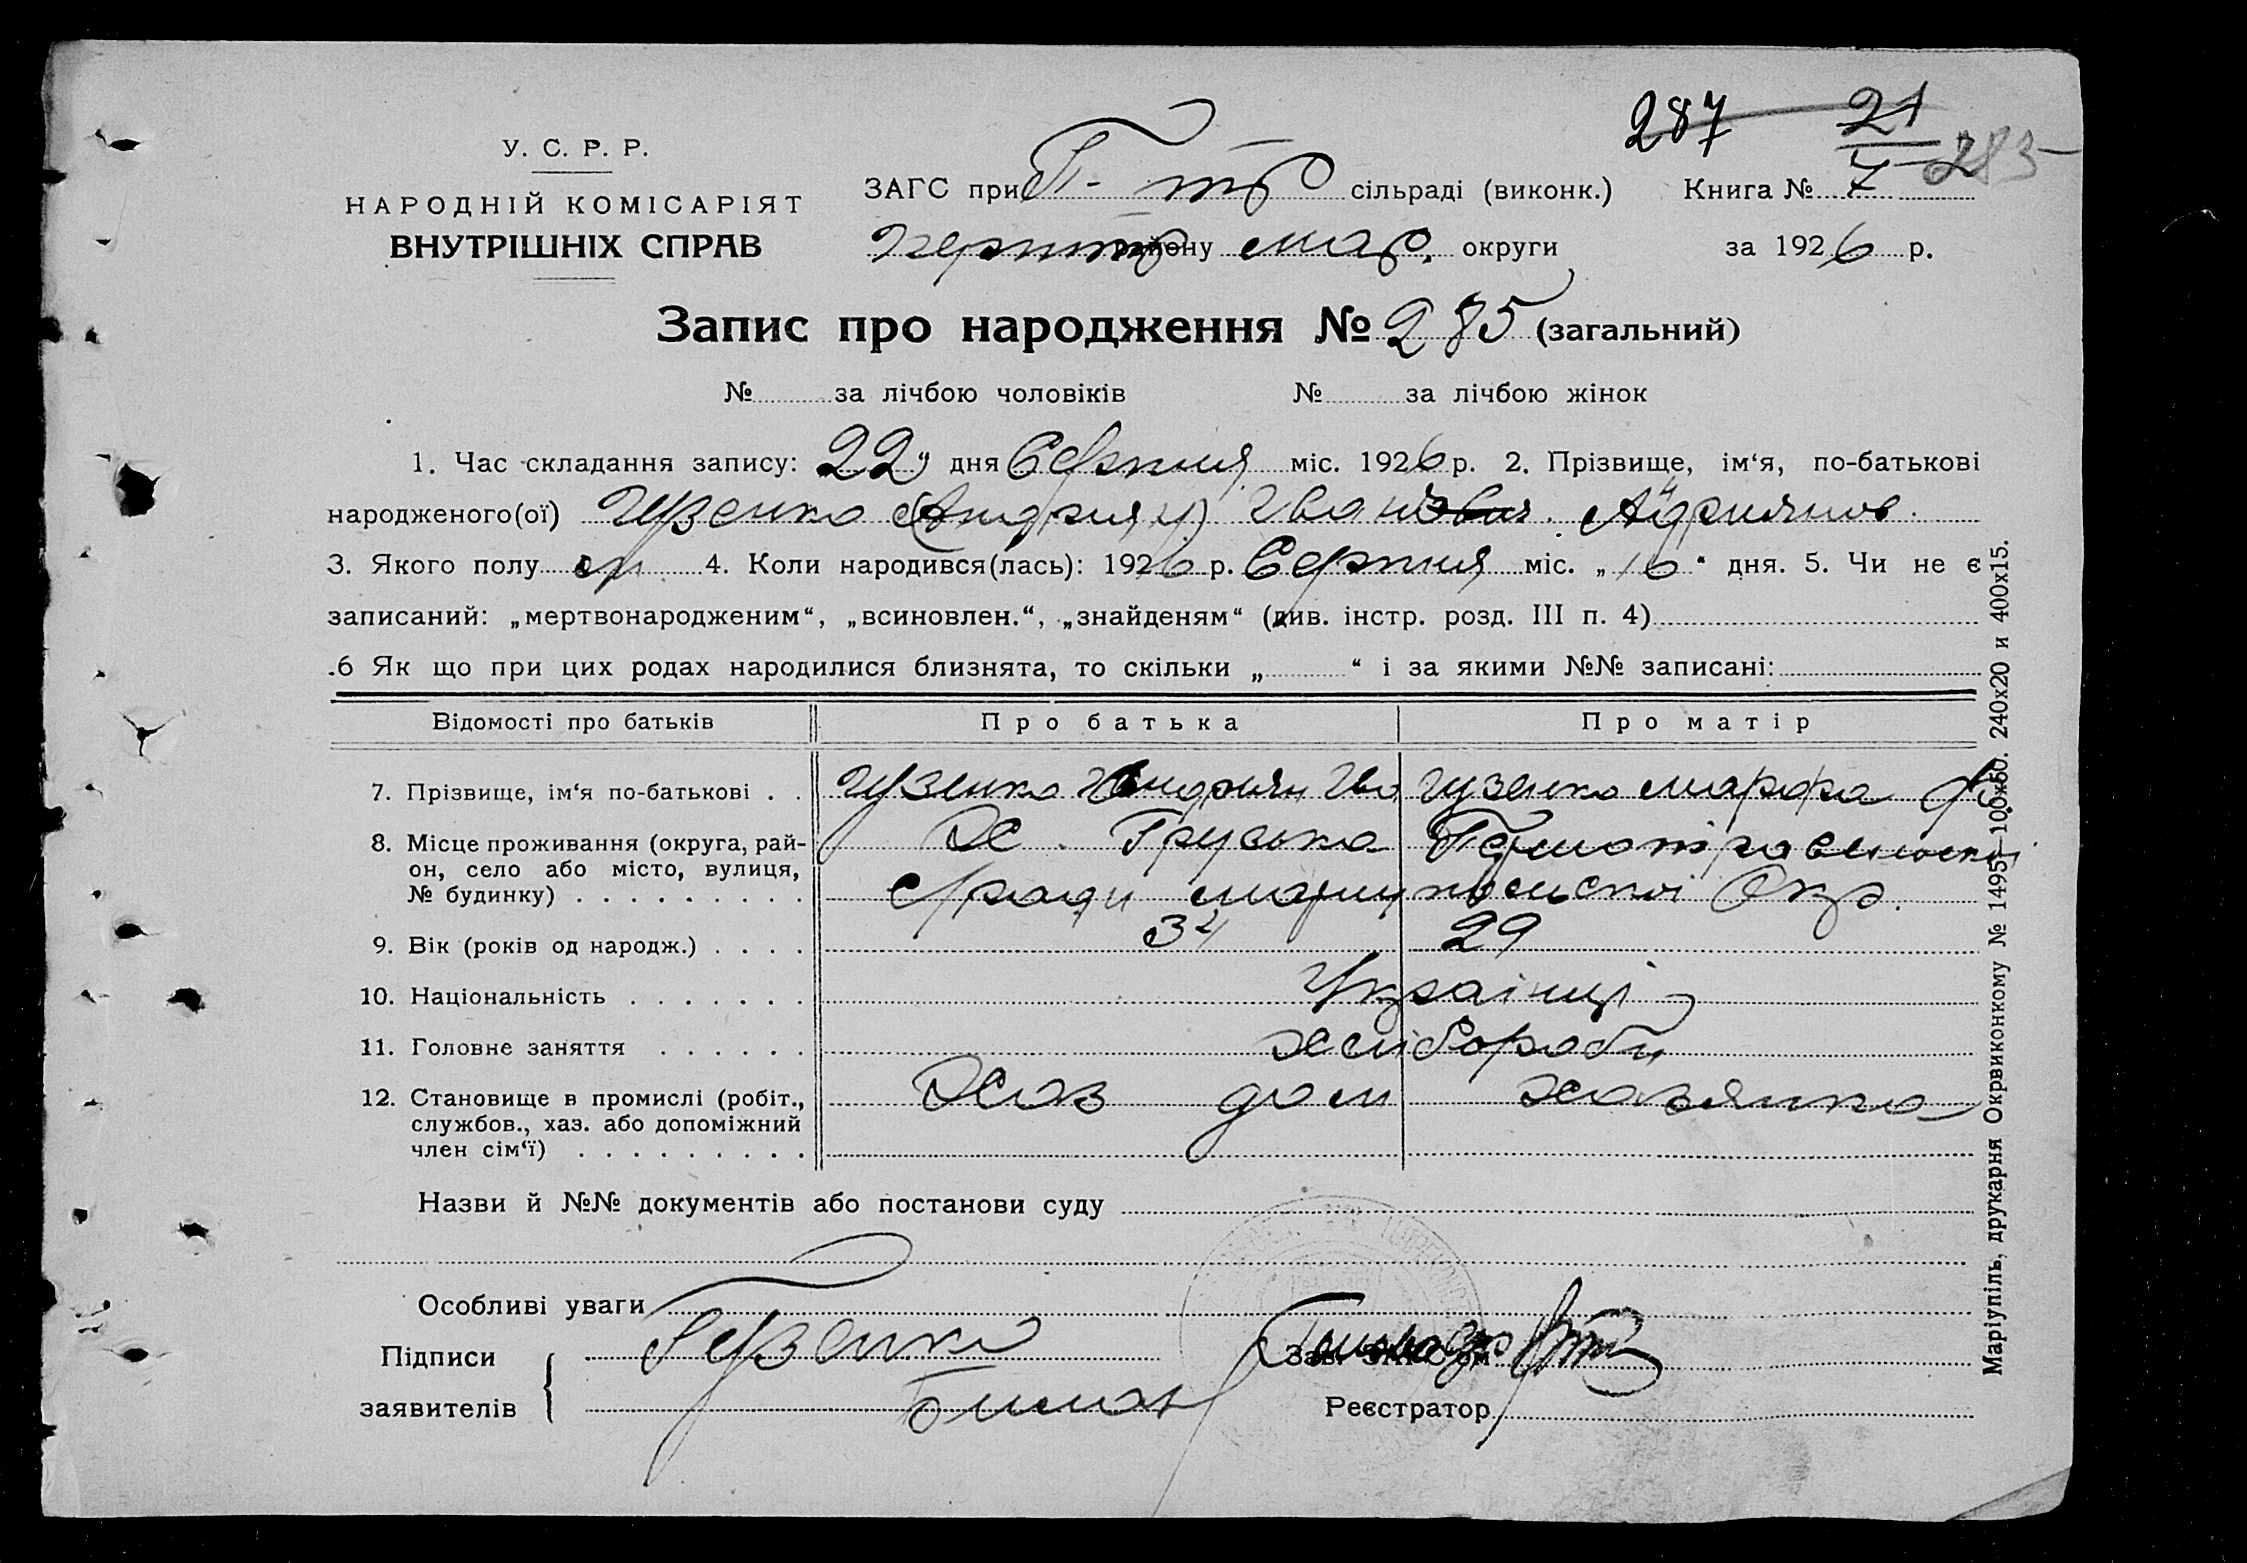 287 21
У. С. Р. Р. 7 285
НАРОДНІЙ КОМІСАРІЯТ
ВНУТРІШНІХ СПРАВ
ЗАГС при сільраді (виконк.) Книга № 7
району мар. округи за 1926 р.
Запис про народження № 285 (загальний)
№ за лічбою чоловіків № за лічбою жінок
1. Час складання запису: 22" дня Серпня міс. 1926 р. 2. Прізвище, ім‘я, по-батькові
народженого(ої) Гузенко Іван
3. Якого полу 4. Коли народився(лась): 1926 р. Серпня міс. „16“ дня. 5. Чи не є
записаний: „мертвонародженим“, „всиновлен.“, „знайденям“ (див. інстр. розд. III п. 4)
.6 Як що при цих родах народилися близнята, то скільки „ “ і за якими №№ записані:
Відомості про батьків Про батька Про матір
7. Прізвище, ім‘я по-батькові . . Гузенко Ів Гузенко Марфа
8. Місце проживання (округа, рай-
он, село або місто, вулиця,
№ будинку) . . . . . . . . .
Х. Груська
с/ради мариупольскоі Окр.
9. Вік (років од народж.) . . . . 34 29
10. Національність . . . . . . . Украінці
11. Головне заняття . . . . . . хлібороби
12. Становище в промислі (робіт.,
службов., хаз. або допоміжний
член сім‘ї) . . . . . . . . .
Хоз дом хозяика
Назви й №№ документів або постанови суду
Особливі уваги
Підписи
заявителів
Гузенко
Зав. ЗАГС‘ом
Реєстратор
Маріупіль, друкарня Окрвиконкому № 1495—100х50. 240х20 и 400х15.